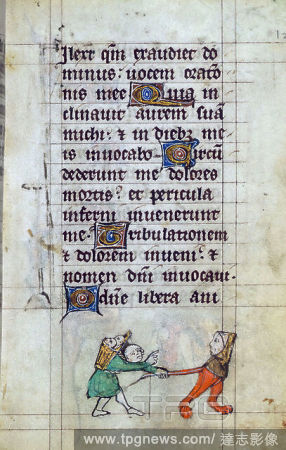 Ilexi qm exaudiet do
minus: uocem oracō
nis mee Quia in
clinauit aurem suā
michi: & in dieb; me
is inuocabo. Circū
dederunt me dolores
mortis: et pericula
inferni inuenerunt
me. Tribulationem
& dolorem inueni: &
nomen dñi inuocaui.
O dñe libera ani
TPG
www.tpgnews.com / 達志影像